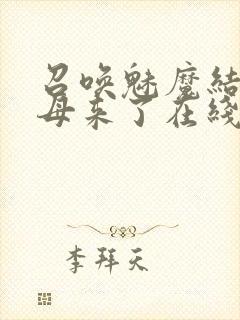 召唤魅魔结
母来了在线
李拜天